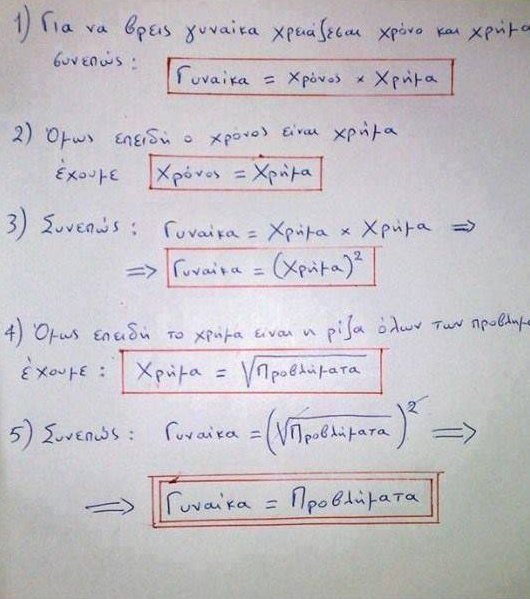 1) Για να βρεις γυναίκα χρειάζεσαι χρόνο και χρήμα
συνεπώς :
Γυναίκα = Χρόνος × Χρήμα
2) Όμως επειδή ο χρόνος είναι χρήμα
έχουμε Χρόνος = Χρήμα
3) Συνεπώς : Γυναίκα = Χρήμα × Χρήμα =>
=> Γυναίκα = (Χρήμα)²
4) Όμως επειδή το χρήμα είναι η ρίζα όλων των προβλημ
έχουμε : Χρήμα = √Προβλήματα
5) Συνεπώς : Γυναίκα = (√Προβλήματα)² =>
=> Γυναίκα = Προβλήματα